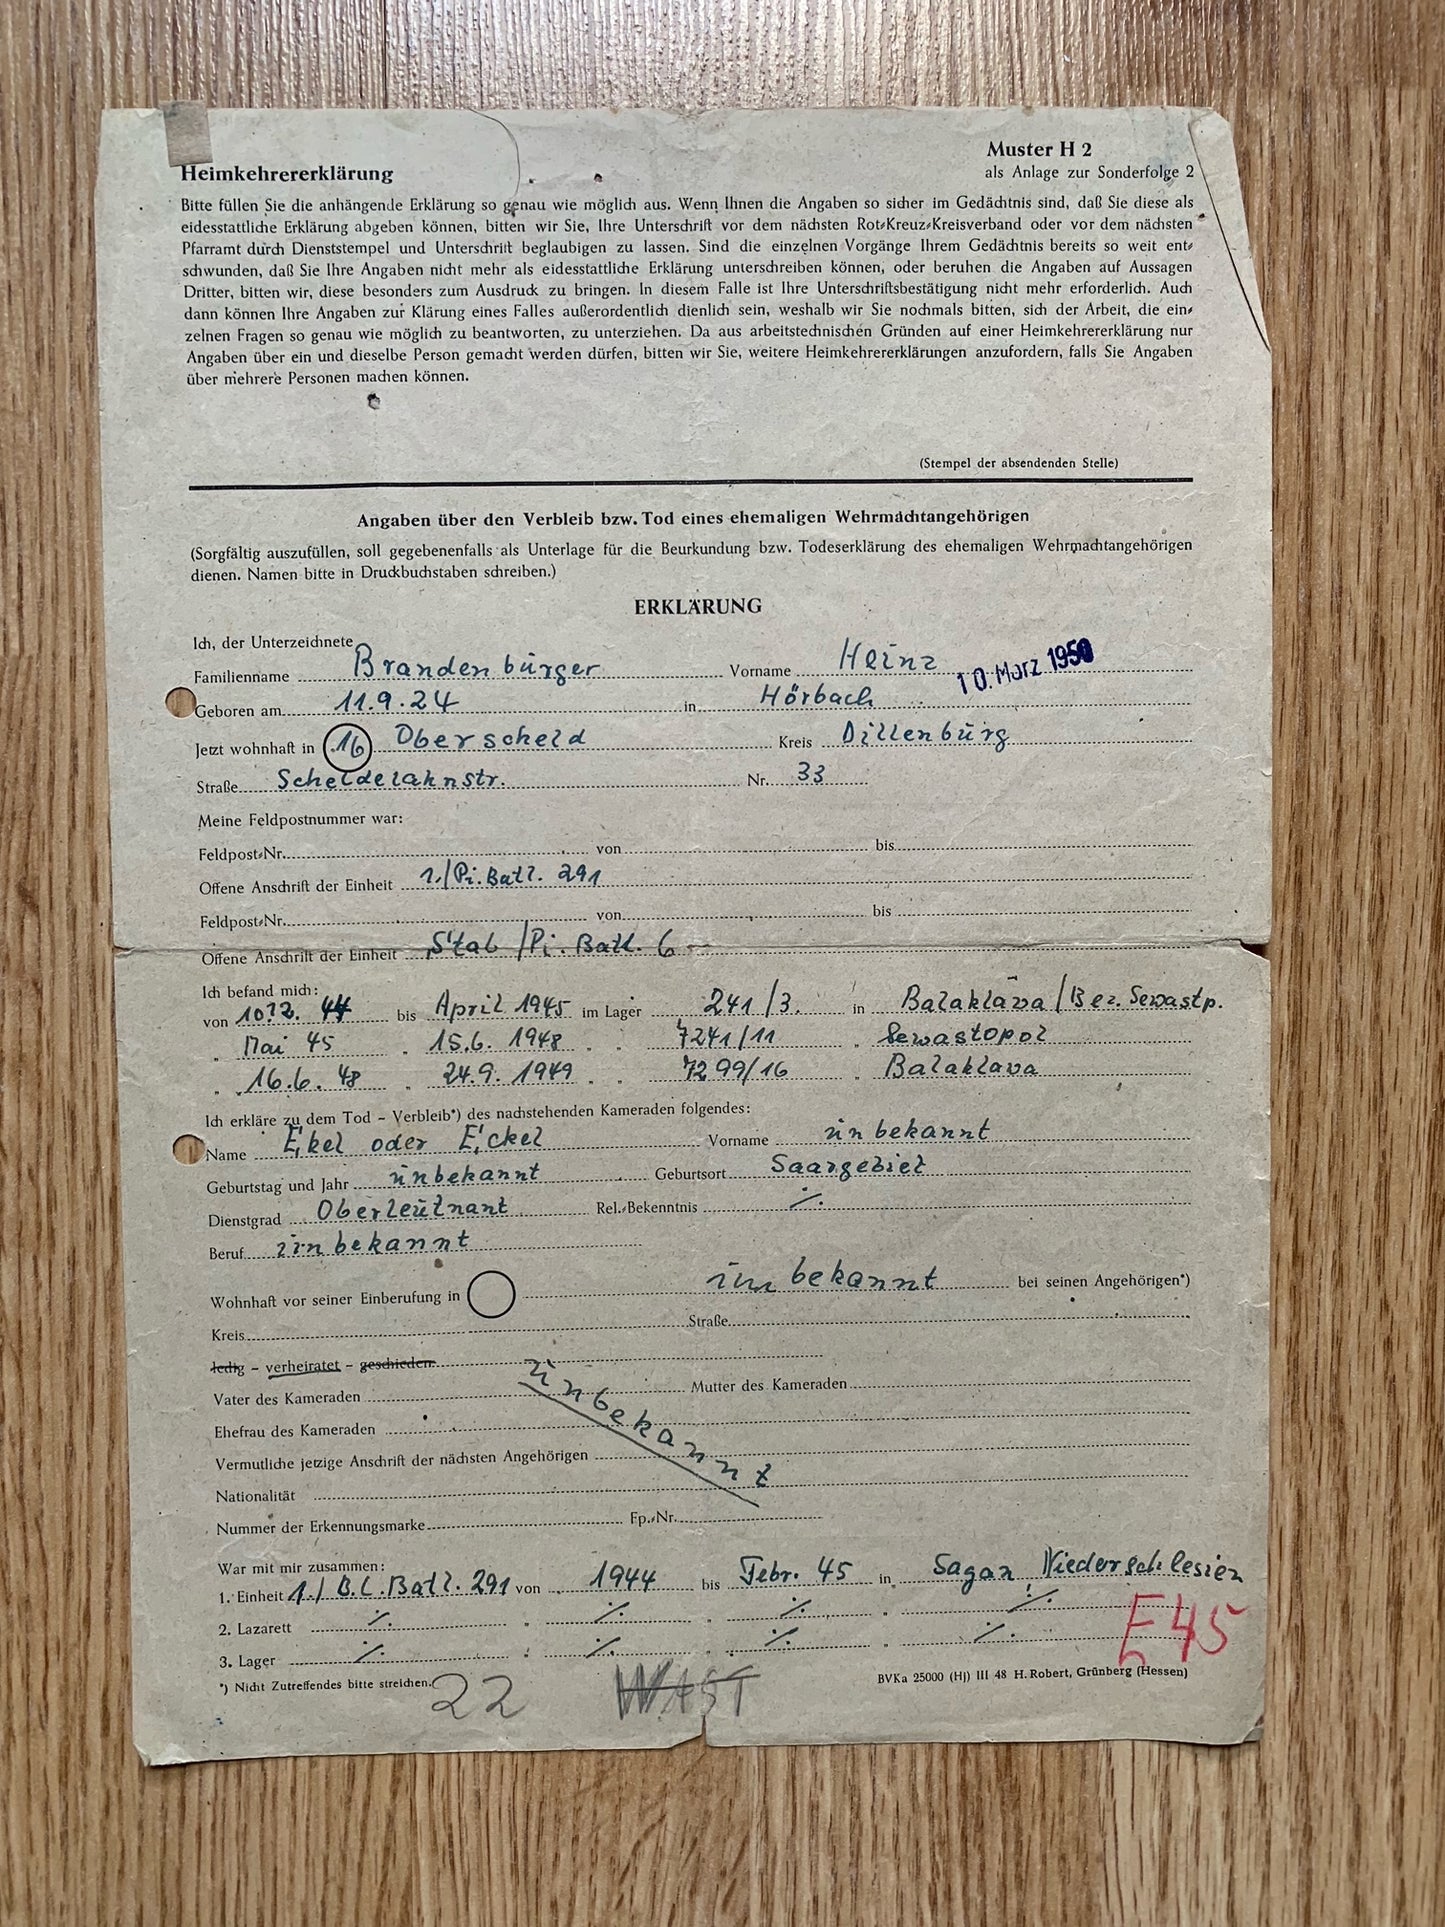 Muster H 2
Heimkehrererklärung als Anlage zur Sonderfolge 2
Bitte füllen Sie die anhängende Erklärung so genau wie möglich aus. Wenn Ihnen die Angaben so sicher im Gedächtnis sind, daß Sie diese als
eidesstattliche Erklärung abgeben können, bitten wir Sie, Ihre Unterschrift vor dem nächsten Rot-Kreuz-Kreisverband oder vor dem nächsten
Pfarramt durch Dienststempel und Unterschrift beglaubigen zu lassen. Sind die einzelnen Vorgänge Ihrem Gedächtnis bereits so weit ent-
schwunden, daß Sie Ihre Angaben nicht mehr als eidesstattliche Erklärung unterschreiben können, oder beruhen die Angaben auf Aussagen
Dritter, bitten wir, diese besonders zum Ausdruck zu bringen. In diesem Falle ist Ihre Unterschriftsbestätigung nicht mehr erforderlich. Auch
dann können Ihre Angaben zur Klärung eines Falles außerordentlich dienlich sein, weshalb wir Sie nochmals bitten, sich der Arbeit, die ein-
zelnen Fragen so genau wie möglich zu beantworten, zu unterziehen. Da aus arbeitstechnischen Gründen auf einer Heimkehrererklärung nur
Angaben über ein und dieselbe Person gemacht werden dürfen, bitten wir Sie, weitere Heimkehrererklärungen anzufordern, falls Sie Angaben
über mehrere Personen machen können.
(Stempel der absendenden Stelle)
Angaben über den Verbleib bzw. Tod eines ehemaligen Wehrmachtangehörigen
(Sorgfältig auszufüllen, soll gegebenenfalls als Unterlage für die Beurkundung bzw. Todeserklärung des ehemaligen Wehrmachtangehörigen
dienen. Namen bitte in Druckbuchstaben schreiben.)
ERKLÄRUNG
Ich, der Unterzeichnete
Familienname Brandenbürger Vorname Heinz 10. März 1950
Geboren am 11.9.24 in Hörbach
Jetzt wohnhaft in 16 Oberscheld Kreis Dillenbürg
Straße Scheldelahnstr. Nr. 33
Meine Feldpostnummer war:
Feldpost-Nr. von bis
Offene Anschrift der Einheit 1./Pi.Batl. 291
Feldpost-Nr. von bis
Offene Anschrift der Einheit Stab/Pi. Batl. 6
Ich befand mich:
von 44 bis April 1945 im Lager 241/3. in Balaklava/Bez. Sewastp.
" Mai 45 " 15.6. 1948 " " 7241/11 " Sewastopol
" 16.6. 48 " 24.9. 1949 " " 7299/16 " Balaklava
Ich erkläre zu dem Tod – Verbleib*) des nachstehenden Kameraden folgendes:
Name Eikel oder Eickel Vorname ünbekannt
Geburtstag und Jahr ünbekannt Geburtsort Saargebiet
Dienstgrad Oberleütnant Rel.-Bekenntnis ./.
Beruf ünbekannt
Wohnhaft vor seiner Einberufung in ünbekannt bei seinen Angehörigen*)
Kreis Straße
ledig – verheiratet – geschieden
Vater des Kameraden Mutter des Kameraden
ünbekannt
Ehefrau des Kameraden
Vermutliche jetzige Anschrift der nächsten Angehörigen
Nationalität
Nummer der Erkennungsmarke Fp.-Nr.
War mit mir zusammen:
1. Einheit 1./B.L.Batl. 291 von 1944 bis Febr. 45 in Sagan, Niederschlesien
2. Lazarett ./. " ./. " ./. " ./.
3. Lager ./. " ./. " ./. " ./.
E45
*) Nicht Zutreffendes bitte streichen. BVKa 25000 (Hj) III 48 H. Robert, Grünberg (Hessen)
22 WAST